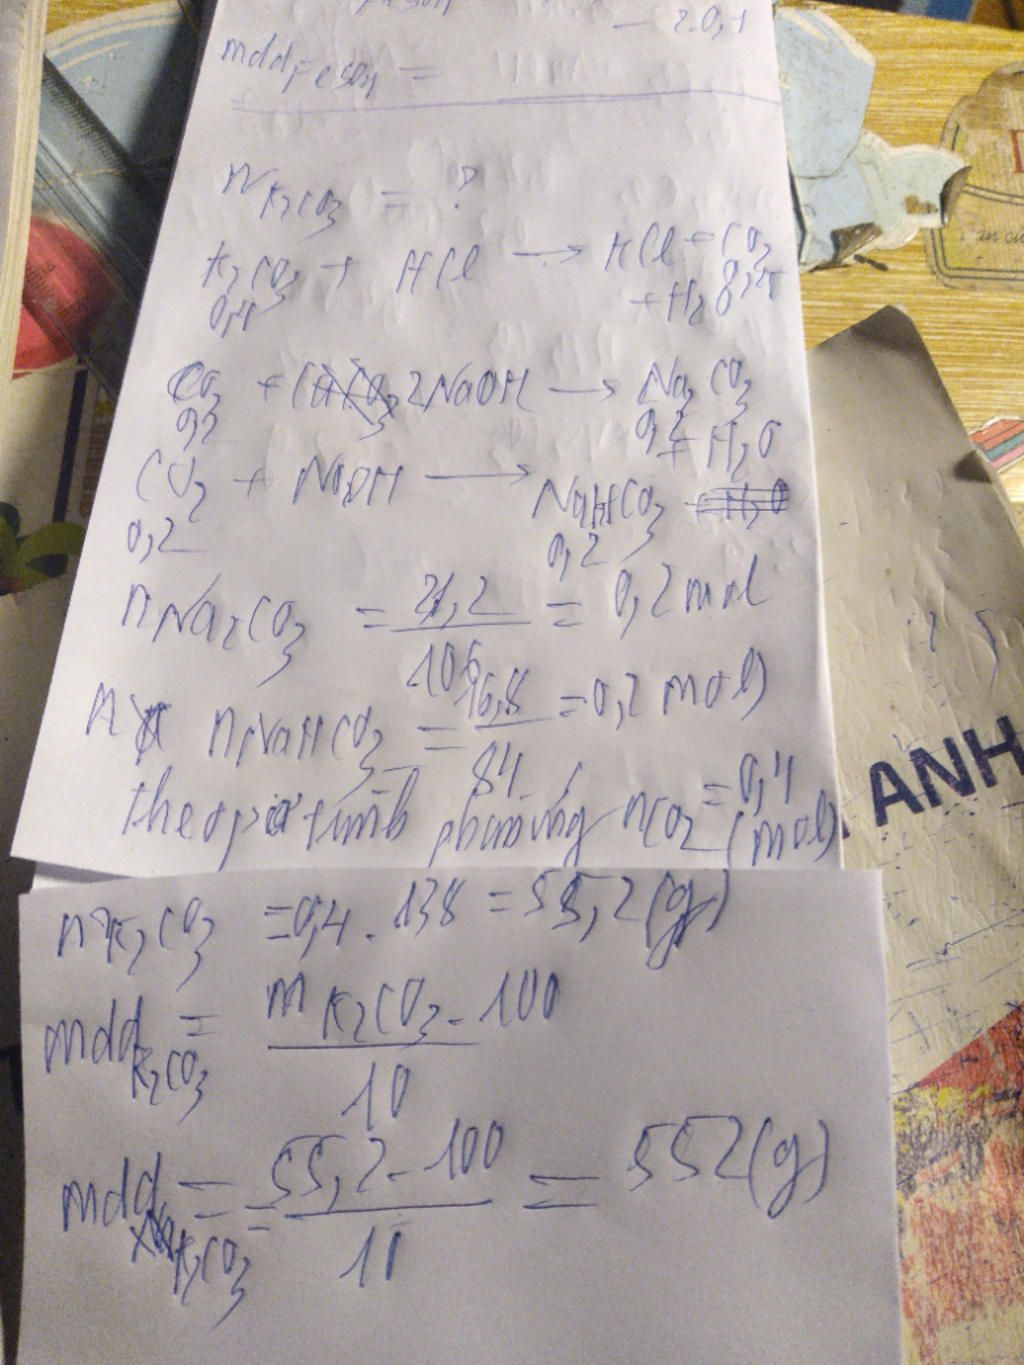 2.0,1
mdd FeSO4 =
n K2CO3 = ?
K2CO3 + HCl → KCl + CO2
0,4 + H2O 0,4
CO2 + 2NaOH → Na2CO3
0,2 0,2 + H2O
CO2 + NaOH → NaHCO3
0,2 0,2
nNa2CO3 = 21,2 / 106 = 0,2 mol
n NaHCO3 = 16,8 / 84 = 0,2 mol
theo phương nCO2 = 0,4 (mol)
K2CO3 = 0,4 . 138 = 55,2 (g)
mdd K2CO3 = m K2CO3 . 100 / 10
mdd K2CO3 = 55,2 . 100 / 10 = 552 (g)
ANH